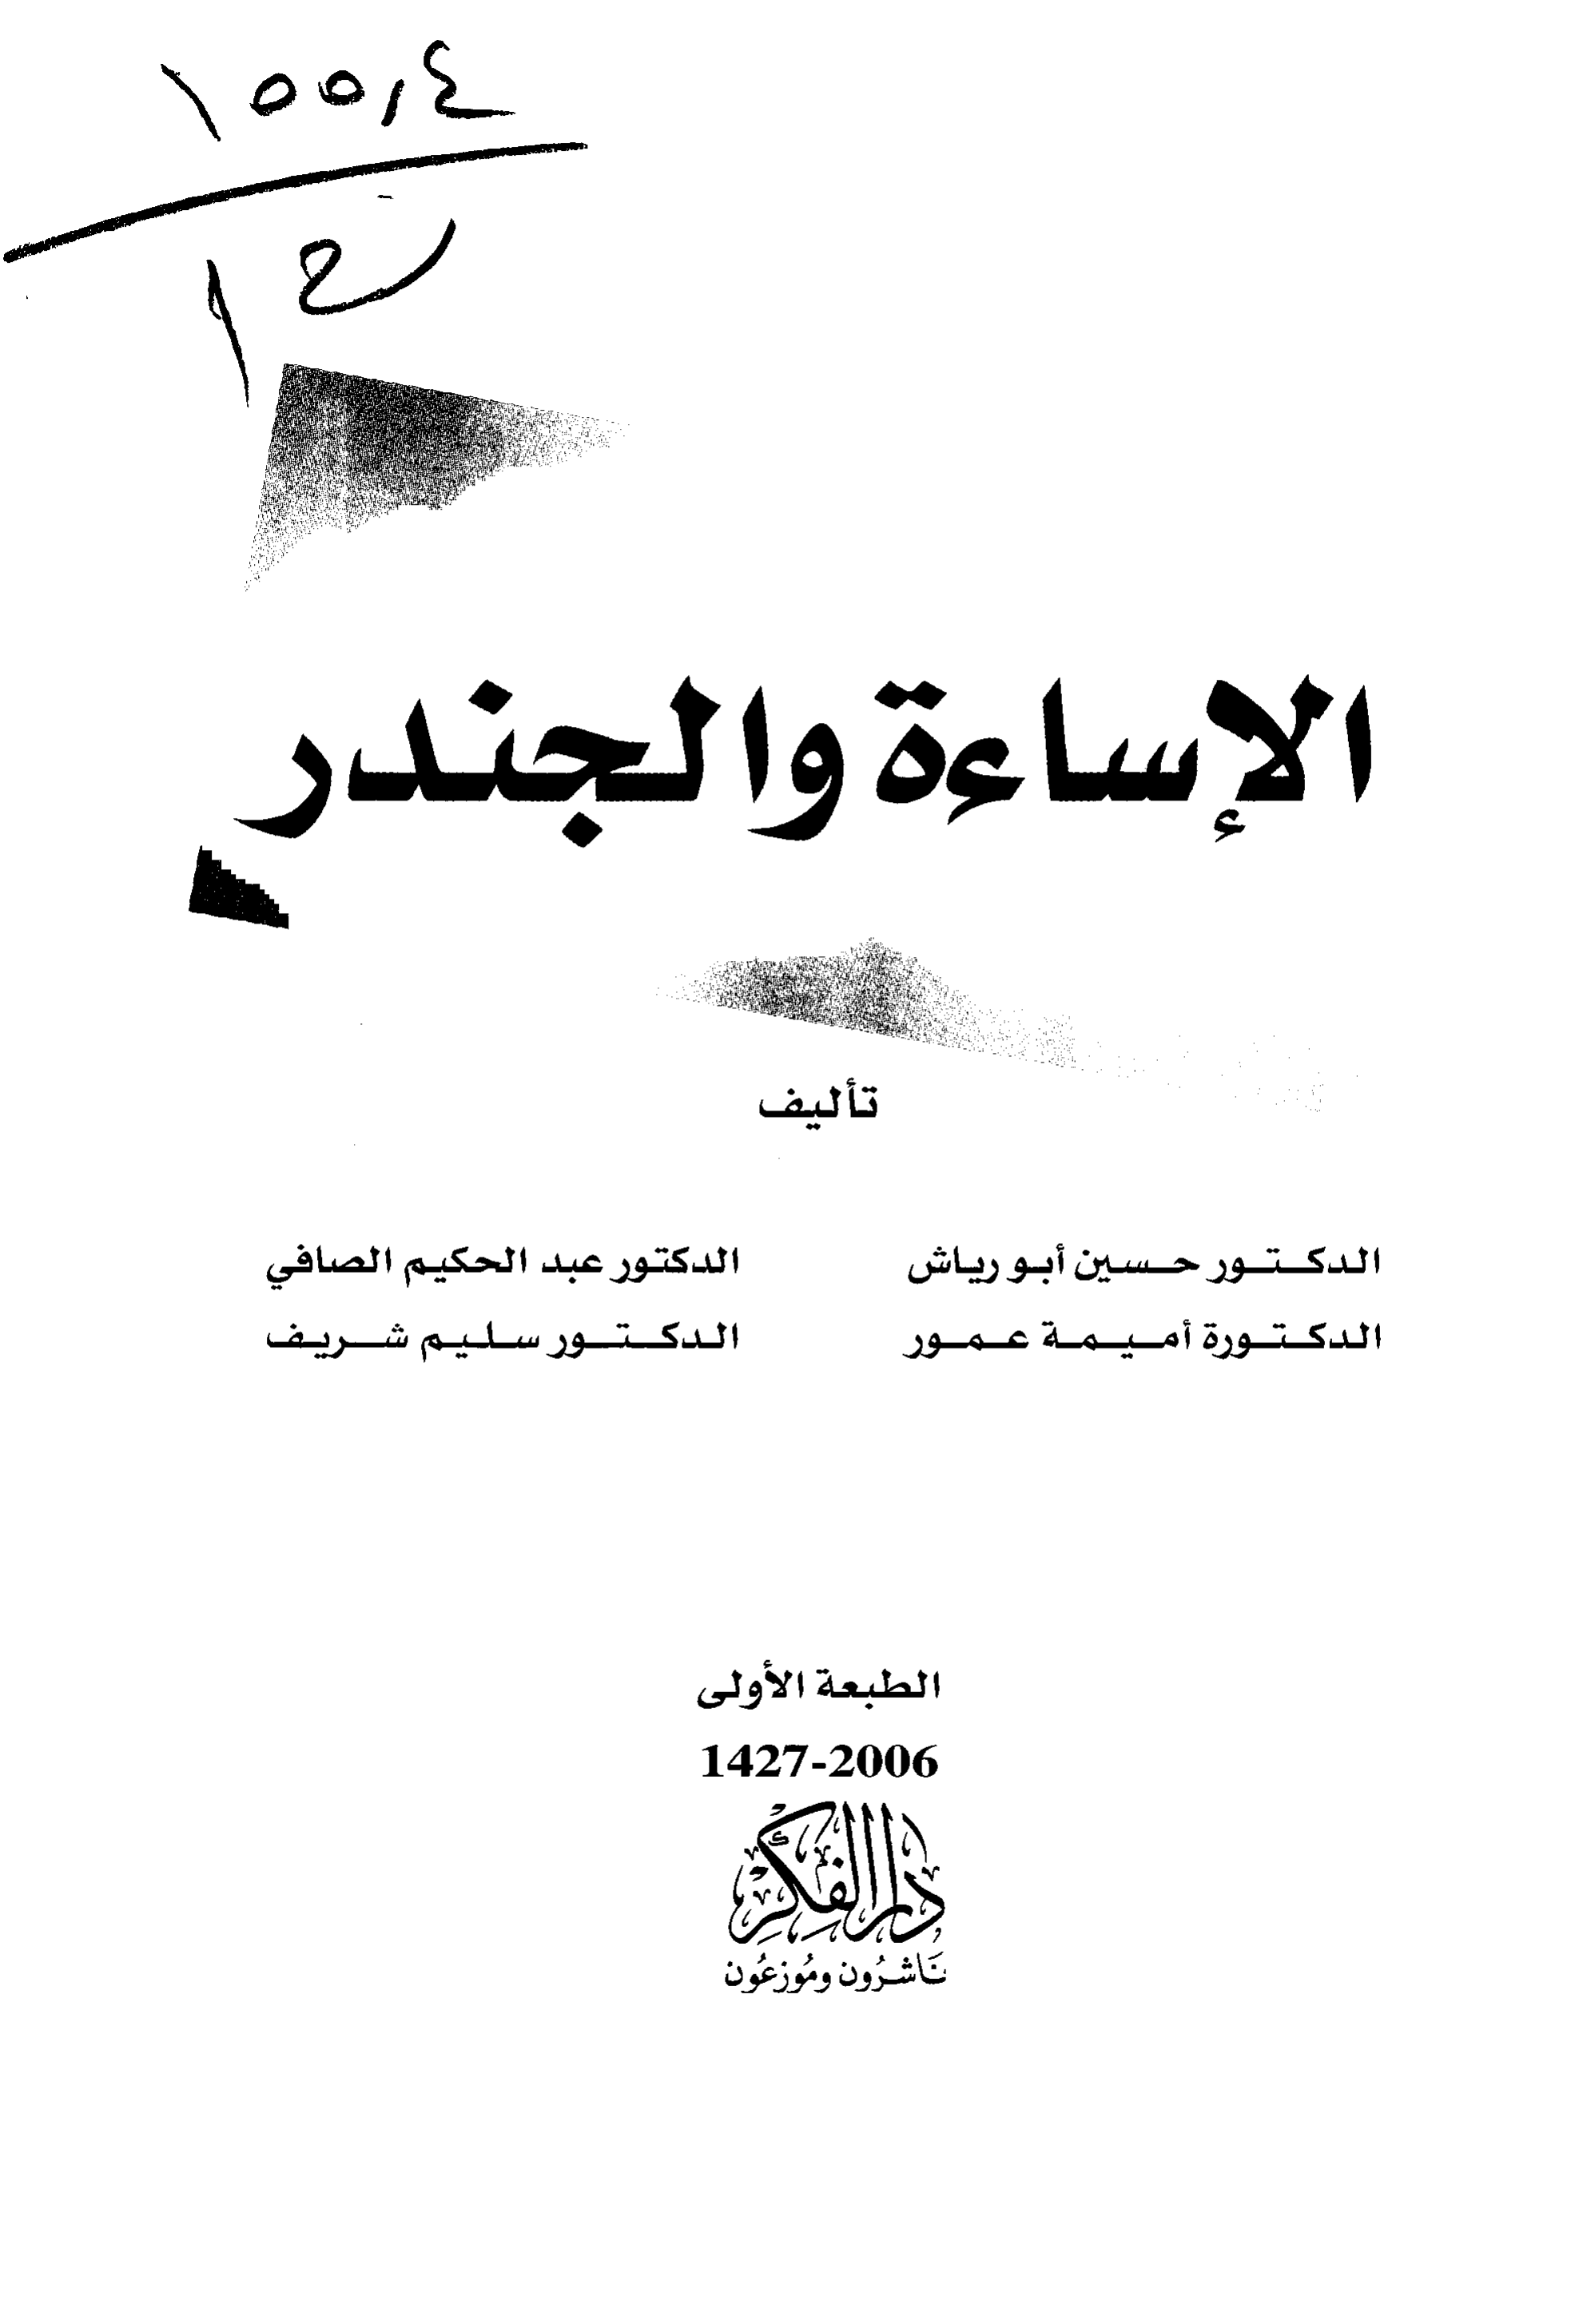 ١٥٥,٤
الإساءة والجندر
تأليف
الدكتور حسين أبو رياش الدكتور عبد الحكيم الصافي
الدكتورة أميمة عمور الدكتور سليم شريف
الطبعة الأولى
1427-2006
دار الفكر
ناشرون وموزعون